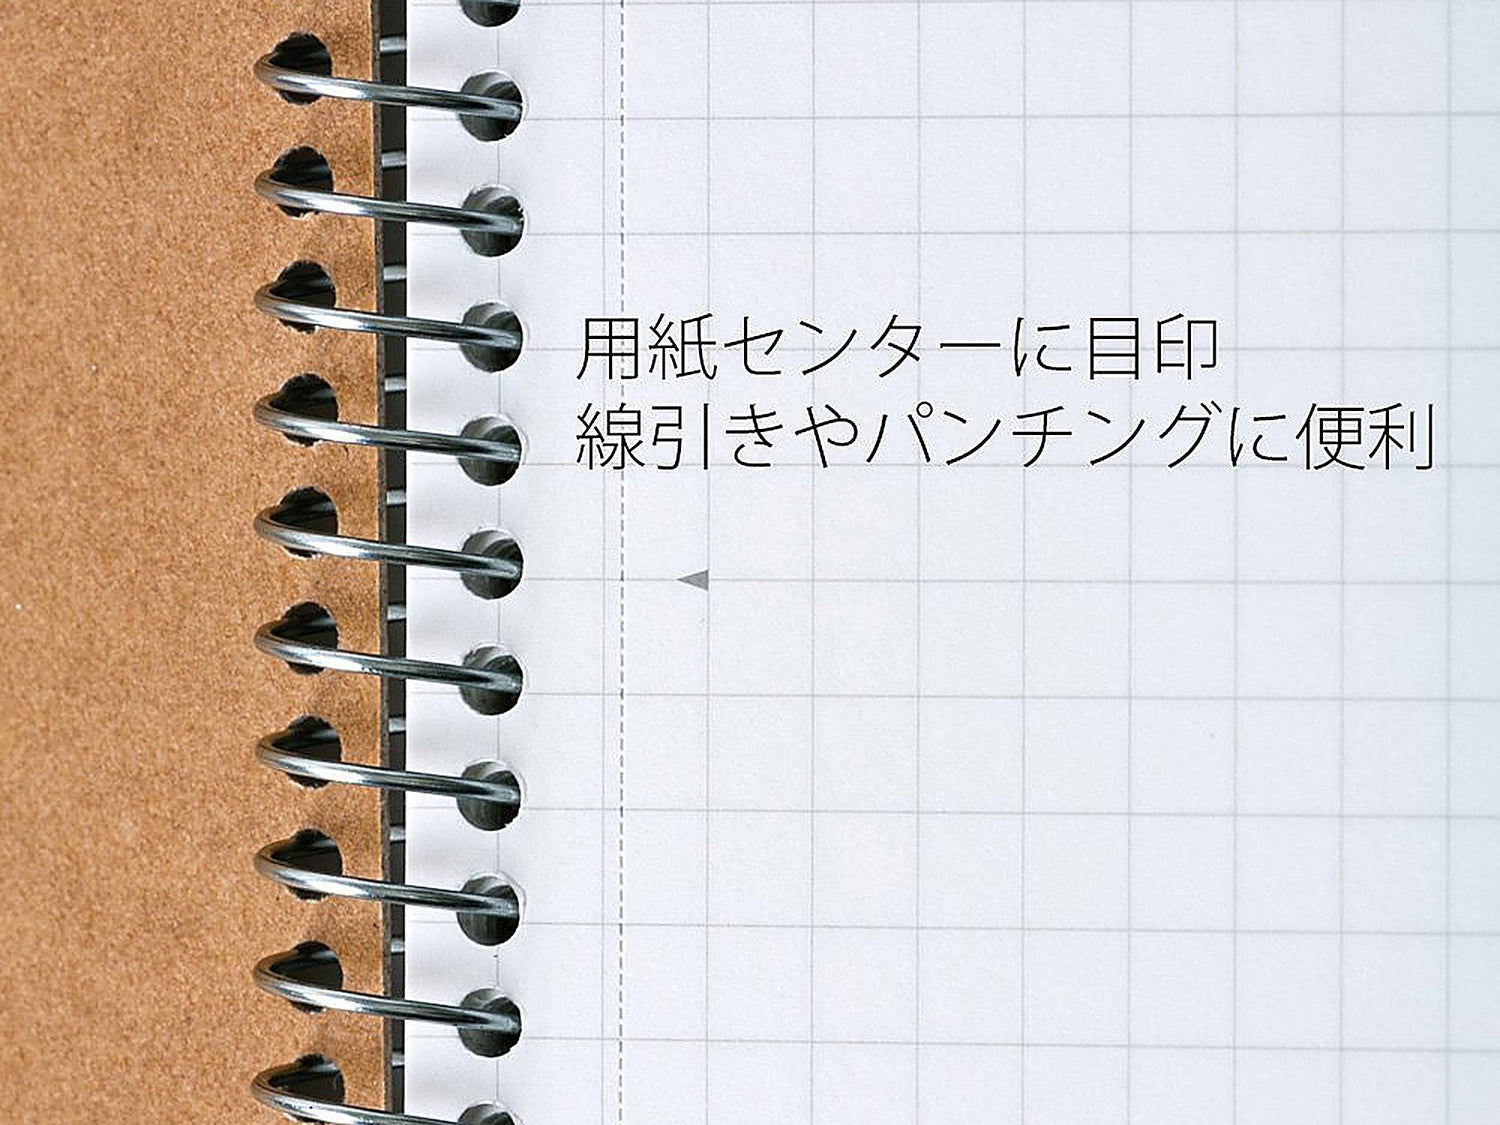 用紙センターに目印
線引きやパンチングに便利